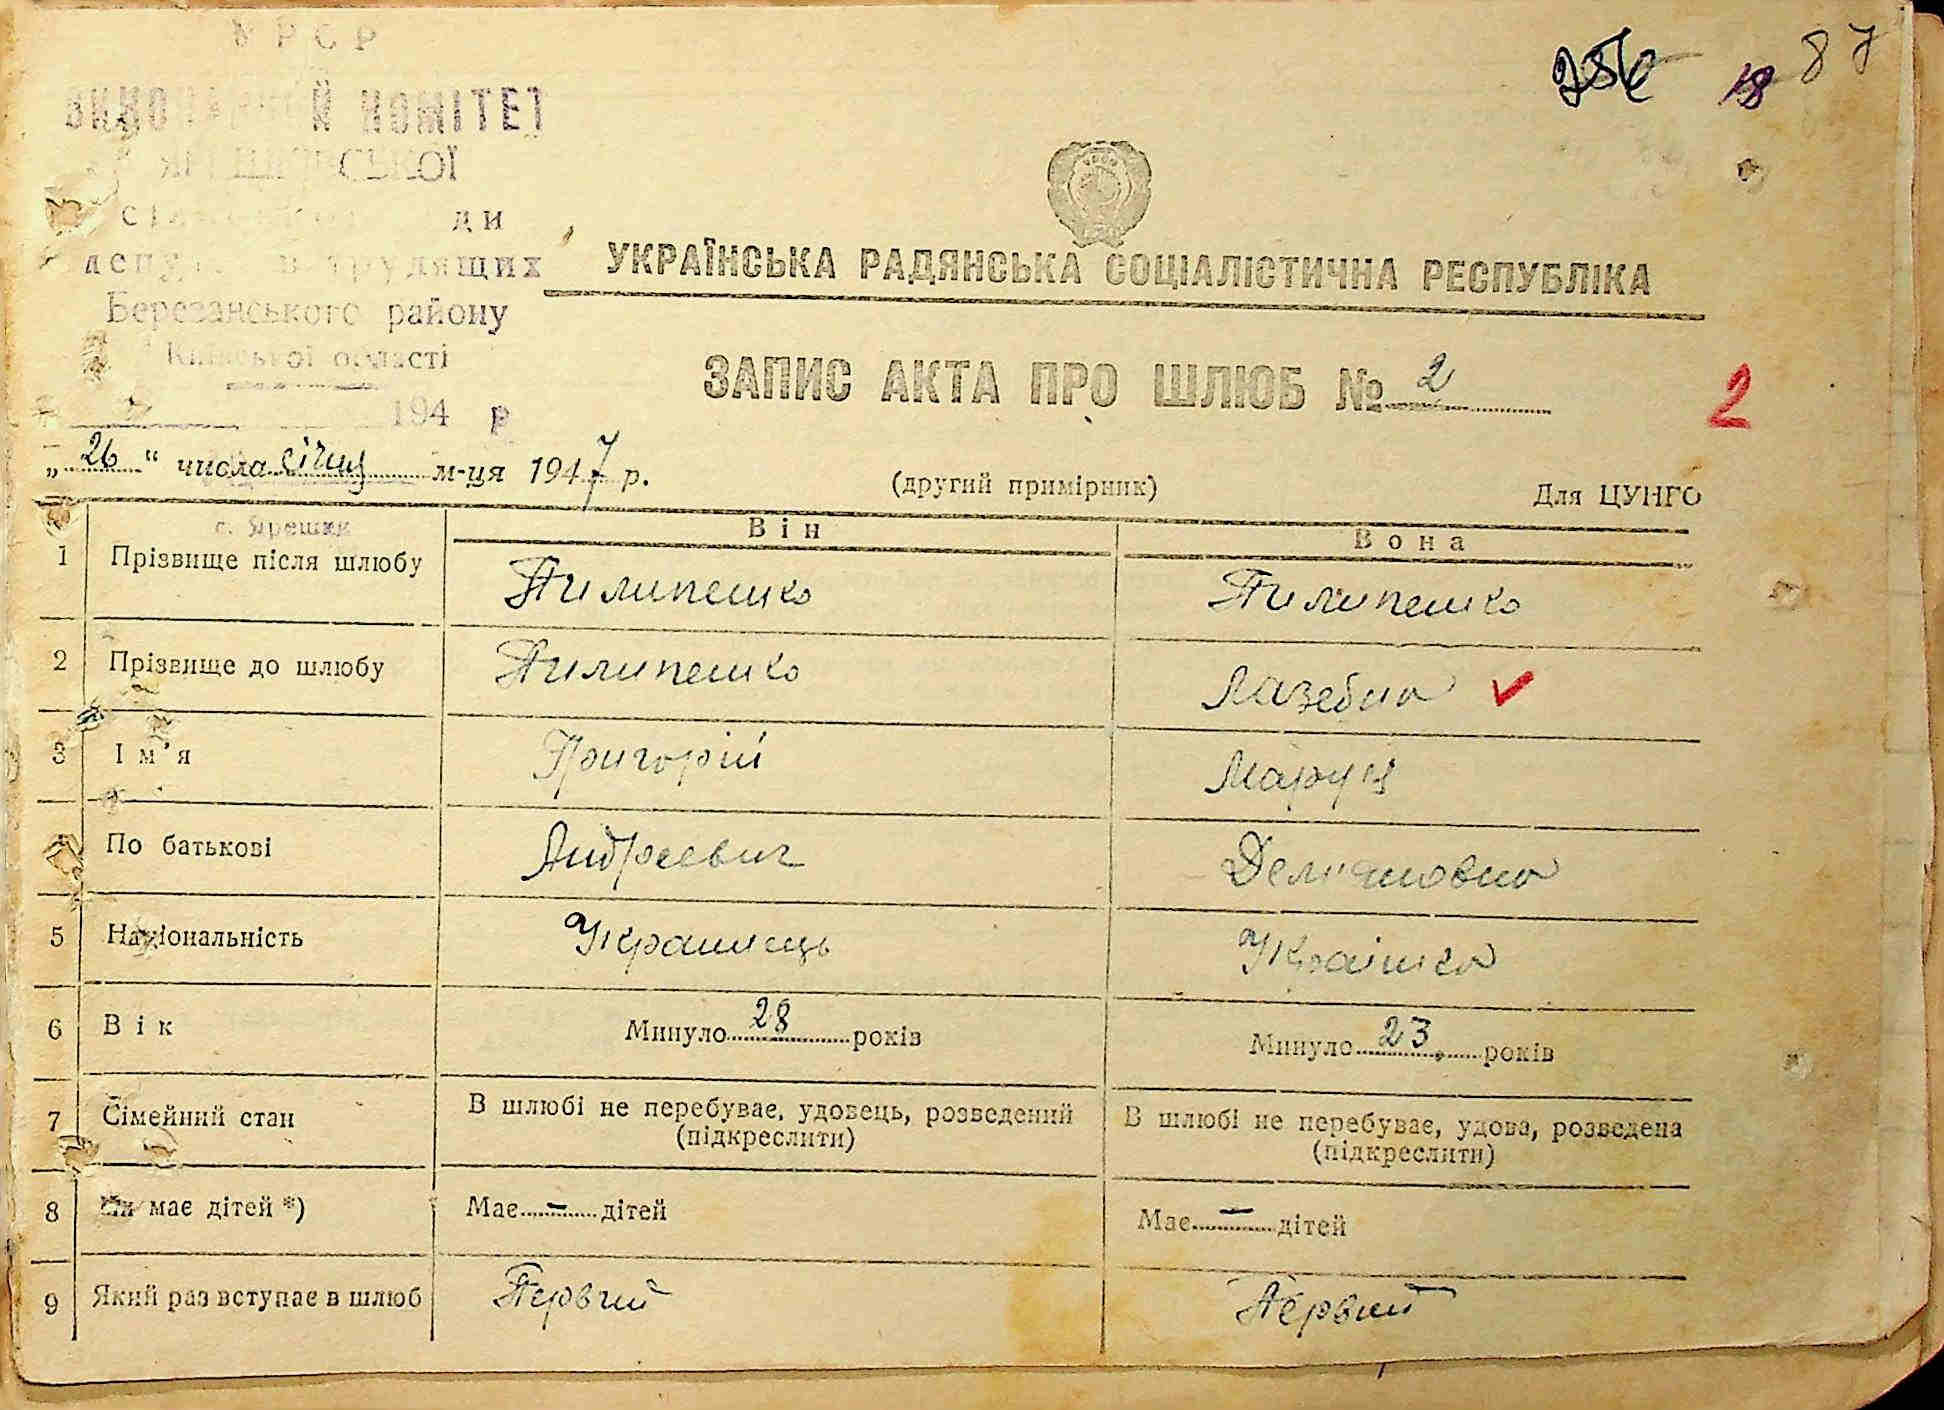 УРСР
ВИКОНАВЧИЙ КОМІТЕТ
ЯРЕШКІВСЬКОЇ
ди
трудящих
Березанського району
Київської області
194 р
256 18 87
УКРАЇНСЬКА РАДЯНСЬКА СОЦІАЛІСТИЧНА РЕСПУБЛІКА
ЗАПИС АКТА ПРО ШЛЮБ № 2
2
„26“ числа січня м-ця 1947 р.
(другий примірник)
Для ЦУНГО
с. Ярешки
Він Вона
1 Прізвище після шлюбу Пилипенко Пилипенко
2 Прізвище до шлюбу Пилипенко Лазебна
3 Ім’я Григорій Маруця
4 По батькові Андреевич Демяновна
5 Національність Українець Українка
6 Вік Минуло 28 років Минуло 23 років
7 Сімейний стан В шлюбі не перебуває, удовець, розведений (підкреслити) В шлюбі не перебуває, удова, розведена (підкреслити)
8 Чи має дітей *) Має — дітей Має — дітей
9 Який раз вступає в шлюб Первий Первий